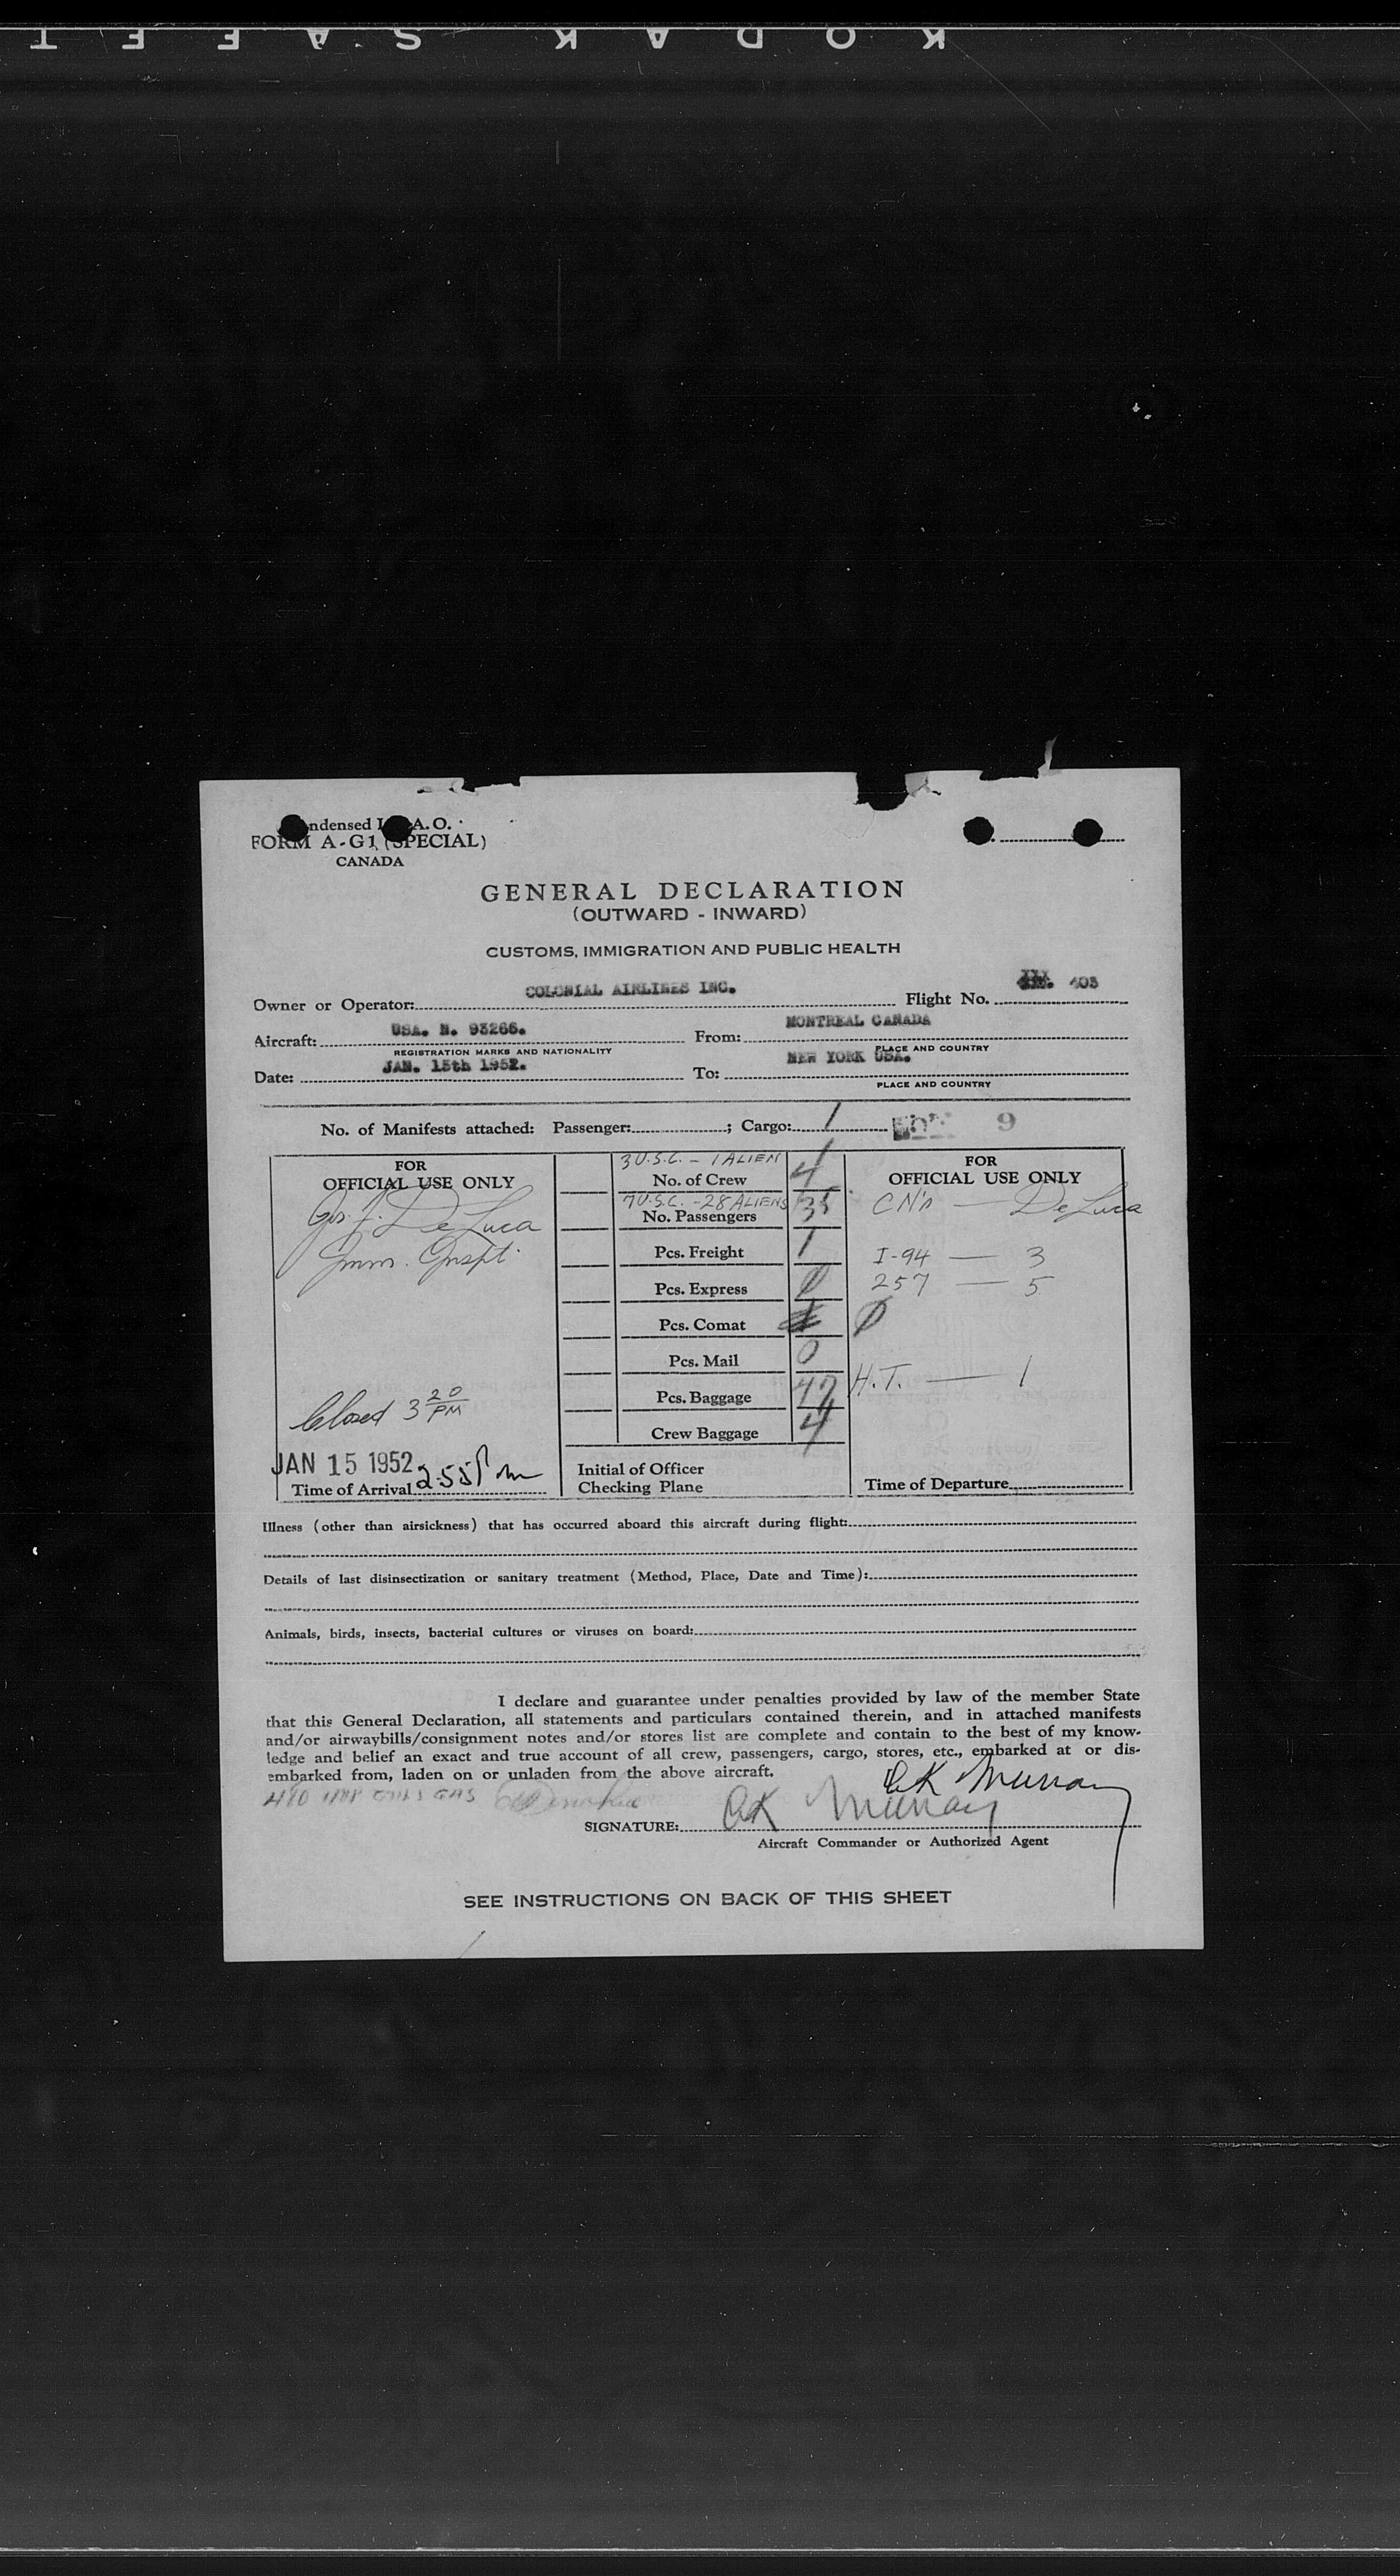 KODAK SAFET
ndensed I A.O.
FORM A-G1 (SPECIAL)
CANADA
GENERAL DECLARATION
(OUTWARD - INWARD)
CUSTOMS, IMMIGRATION AND PUBLIC HEALTH
Owner or Operator: COLONIAL AIRLINES INC. Flight No. 403
Aircraft: USA. N. 93266. From: MONTREAL CANADA
REGISTRATION MARKS AND NATIONALITY PLACE AND COUNTRY
Date: JAN. 15th 1952. To: NEW YORK USA.
PLACE AND COUNTRY
No. of Manifests attached: Passenger: ; Cargo: 1 9
FOR OFFICIAL USE ONLY
De Luca
Imm. Inspt.
Closed 3 20 PM
JAN 15 1952
Time of Arrival 2:55 Pm
3 U.S.C. - 1 ALIEN
No. of Crew 4
7 U.S.C. - 28 ALIENS
No. Passengers 35
Pcs. Freight 1
Pcs. Express 0
Pcs. Comat
Pcs. Mail 0
Pcs. Baggage 47
Crew Baggage 4
Initial of Officer
Checking Plane
FOR
OFFICIAL USE ONLY
De Luca
I-94 — 3
257 — 5
0
H.T. — 1
Time of Departure
Illness (other than airsickness) that has occurred aboard this aircraft during flight:
Details of last disinsectization or sanitary treatment (Method, Place, Date and Time):
Animals, birds, insects, bacterial cultures or viruses on board:
I declare and guarantee under penalties provided by law of the member State
that this General Declaration, all statements and particulars contained therein, and in attached manifests
and/or airwaybills/consignment notes and/or stores list are complete and contain to the best of my know-
ledge and belief an exact and true account of all crew, passengers, cargo, stores, etc., embarked at or dis-
embarked from, laden on or unladen from the above aircraft.
CK Murray
GAS
SIGNATURE: CK Murray
Aircraft Commander or Authorized Agent
SEE INSTRUCTIONS ON BACK OF THIS SHEET